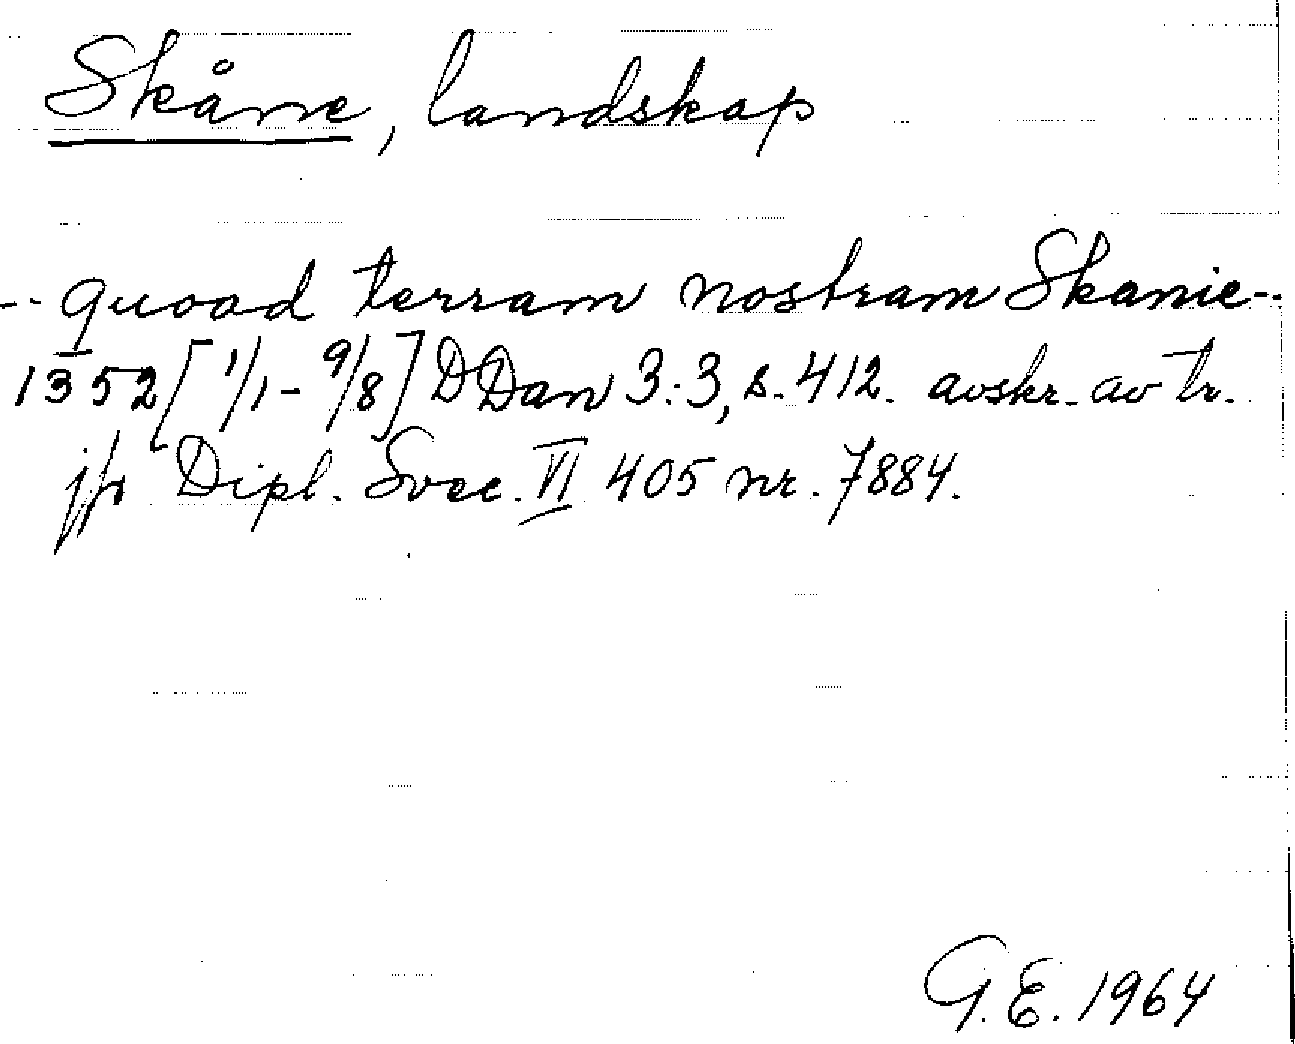 Skåne, landskap
-- quoad terram nostram Skanie --
1352 [1/1 - 9/8] DDan 3:3, s. 412. avskr. av tr.
jfr Dipl. Svec. VI 405 nr. 7884.
G.E. 1964